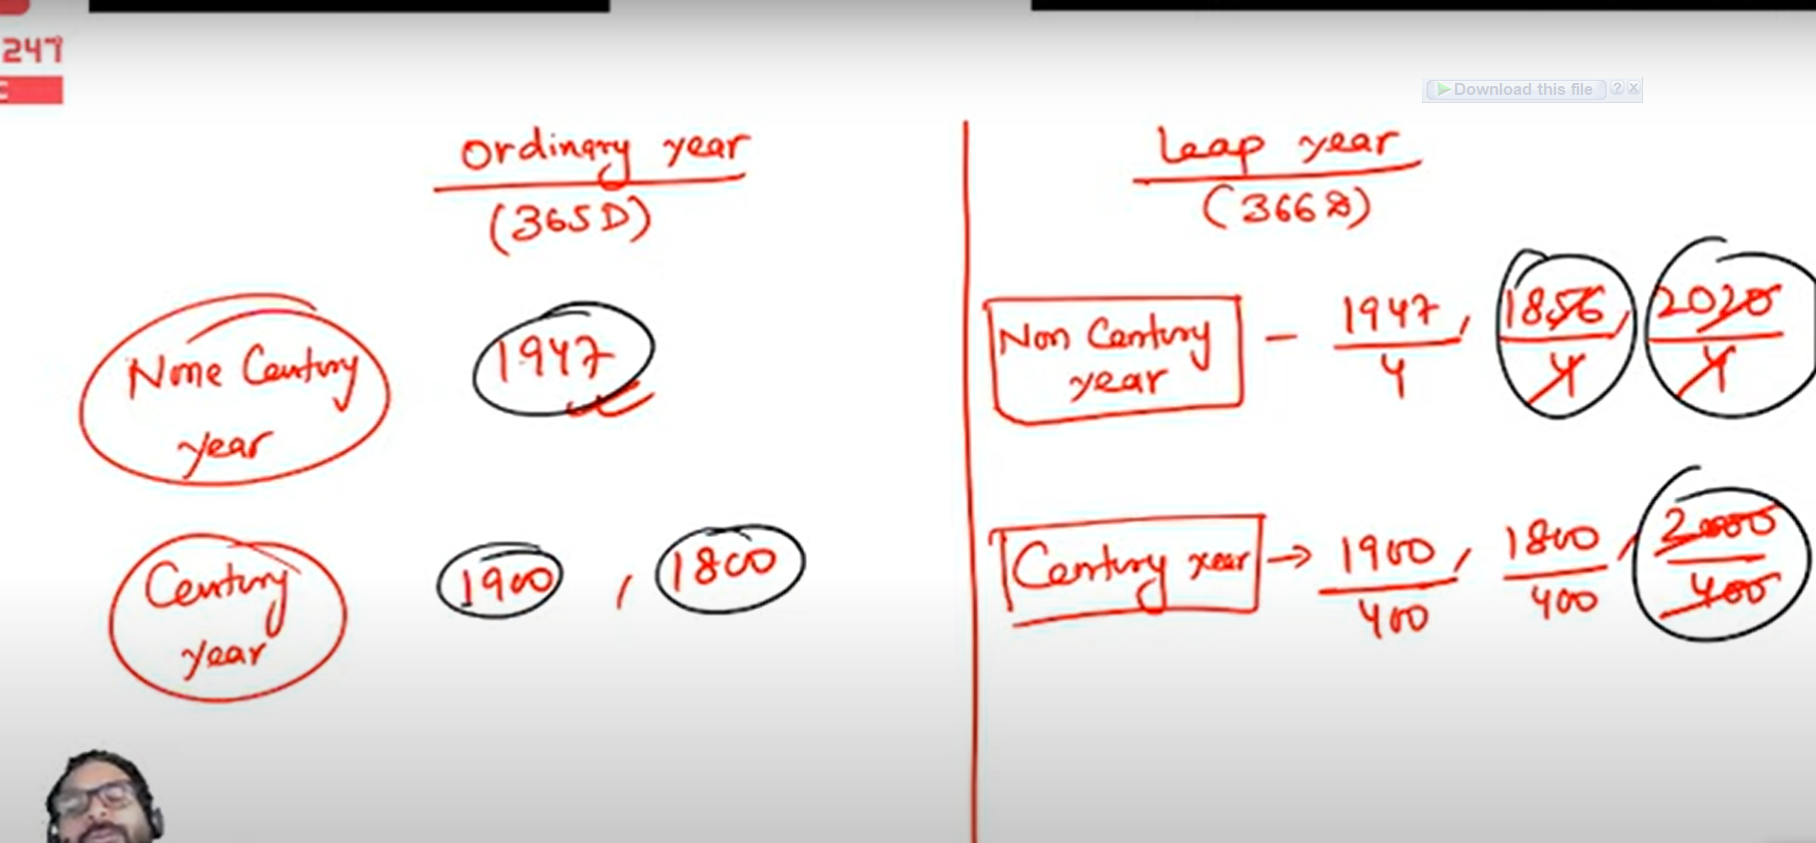 247
Download this file ? X
Ordinary year
(365D)
None Century
year
1947
Century
year
1900 , 1800
Leap year
(366D)
Non Century
year
- 1947/4 , 1856/4 , 2020/4
Century year → 1900/400 , 1800/400 , 2000/400